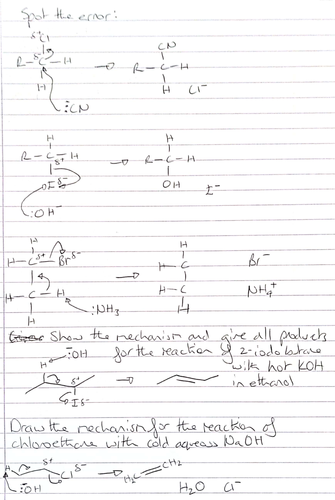 Spot the error:
δ+ Cl
CN
R-C-H δ-
R-C-H
H
H Cl-
:CN
H
H
R-C-H
R-C-H
δ+
I δ-
OH
I-
:OH-
H
H
H-C-Br δ+ δ-
H-C
Br-
H-C-H
H-C
NH4+
H
:NH3
H
Show the mechanism and give all products
:OH for the reaction of 2-iodobutane
H
with hot KOH
δ+
in ethanol
I δ-
Draw the mechanism for the reaction of
chloroethane with cold aqueous NaOH
H Cl δ-
CH2
:OH
H2C
H2O Cl-